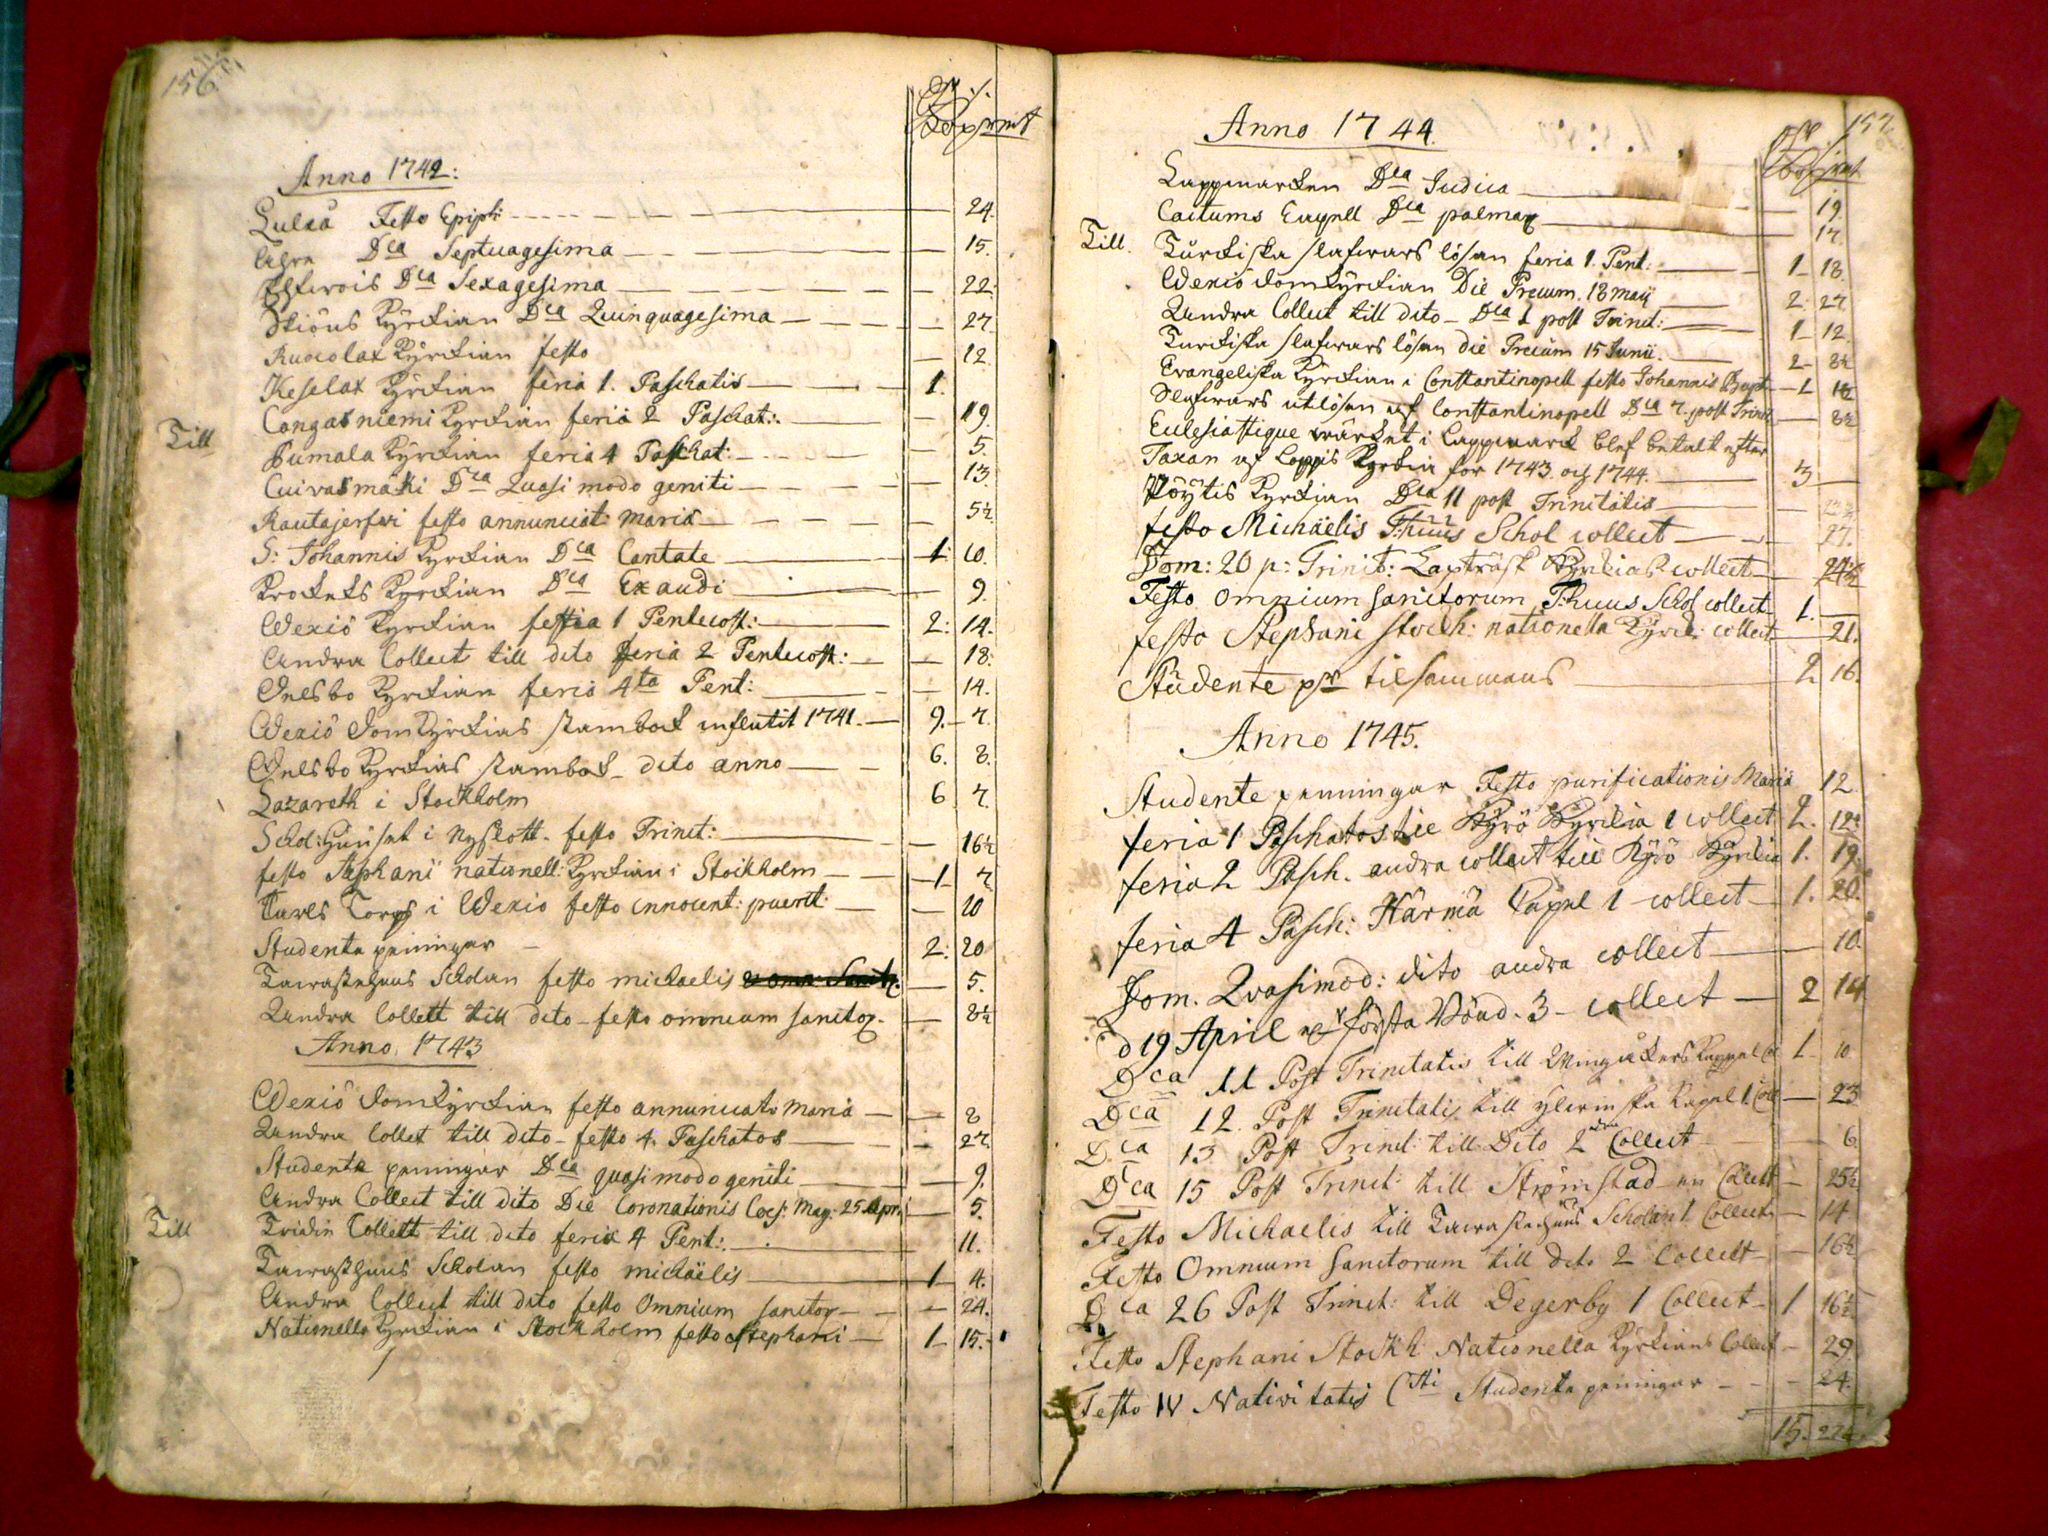 156.
Anno 1742:
Luleå Festo Epiph: 24.
Dca Septuagesima 15.
Dca Sexagesima 22
Kyrckian Dca Quinquagesima 27
Ruocolax Kyrckian festo 12
Keselax Kyrckian feria 1. Paschatis 1.
Cangasniemi Kyrckian feria 2 Paschat: 19.
Till
Pumala Kyrckian feria 4 Paschat: 5.
Cuivasmäki Dca Quasimodo geniti 13
Rautajerfwi festo annunciat: Mariæ 5½
S: Johannis Kyrckian Dca Cantate 1. 10.
Krokeks Kyrckian Dca Exaudi 9.
Wexiö Kyrckian feria 1 Pentecost: 2: 14.
Andra Collect till dito feria 2 Pentecost: 18.
Kyrckian feria 4ta Pent: 14.
Wexiö DomKyrckias stambock influtit 1741. 9. 7.
Kyrckias stambok dito anno 6. 8.
Lazareth i Stockholm 6 7.
Schol: Huuset i Nyslott. festo Trinit: 16½
festo Stephani nationell: Kyrckian i Stockholm 1 7
Torp i Wexio festo innocent: puerit: 10
Studente penningar 2: 20
Tawastehuus Scholan festo michaelis 5.
Andra Collett till dito festo omnium sanctor. 8½
Anno 1743
Wexiö DomKyrckian festo annunciato Maria 8
Andra Collet till dito festo 4. Paschatos 27.
Studente peningar Dca quasimodogeniti 9.
Andra Collect till dito Die Coronationis Caes: Mag: 25 Apr: 5.
Till
Tridie Collett till dito feria 4 Pent: 11.
Tawasthuus Scholan festo michäelis 1 4.
Andra Collect till dito festo Omnium sanctor 24.
Nationella Kyrckian i Stockholm festo Stephani 1 15.
157.
Anno 1744.
Lappmarcken Dca Judica 19.
Caitums Capell Dca palmar 17.
Till.
Turckiska slafwars lösen feria 1. Pent: 1 18.
Wexiö domkyrckian Die Precum. 18 Maij 2 27
Andra Collect till dito Dca 1 post Trinit: 1 12.
Turckiska slafwars lösen die Precum 15 Junii 2 8½
Evangeliska Kyrckian i Constantinopell festo Johannis Bapt 1 1½
Slafwars utlösen af Constantinopell Dca 7. post Trinit 8½
Eclesiastique wärcket i Lappmarck blef betalt efter
Taxan af Loppis Kyrckia for 1743 och 1744. 3
Pöytis Kyrckian Dca 11 post Trinitatis
festo Michäelis T:huus Schol collect 27.
Dom: 20 p: Trinit: Laxträsk Kyrckias collect
Festo omnium sanctorum T:huus Schol collect 1.
festo Stephani stockh: nationella Kyrck: collect 21.
Studente pgr tilsammans 2 16.
Anno 1745.
Studente penningar Festo purificationis Mariæ 12
feria 1 Paschatos till Kyrö Kyrckia 1 collect 2. 12½
feria 2 Pasch. andra collect till Kyrö Kyrckia 1. 19.
feria 4 Pasch: Härmä Capel 1 collect 1. 20.
Dom. Qvasimod: dito andra collect 10.
d 19 April af första Bönd. 3 collect 2 14
Dca 11 Post Trinitatis till Wingåkers Kappel Col 1 10
Dca 12. Post Trinitatis till Kapel 1 Coll 23
Dca 13 Post Trinit: till Dito 2 Collect 6
Dca 15 Post Trinit: till Strömstad en Collect 25½
Festo Michaelis till Tawastehuus Scholan 1 Collect 14
Festo Omnium Sanctorum till dito 2 Collect 16½
Dca 26 Post Trinit: till Degerby 1 Collect 1 16½
Festo Stephani Stockh. Nationella Kyrckians Collect 29.
Festo IV Nativitatis Csti Studente peningar 24.
15. 22½